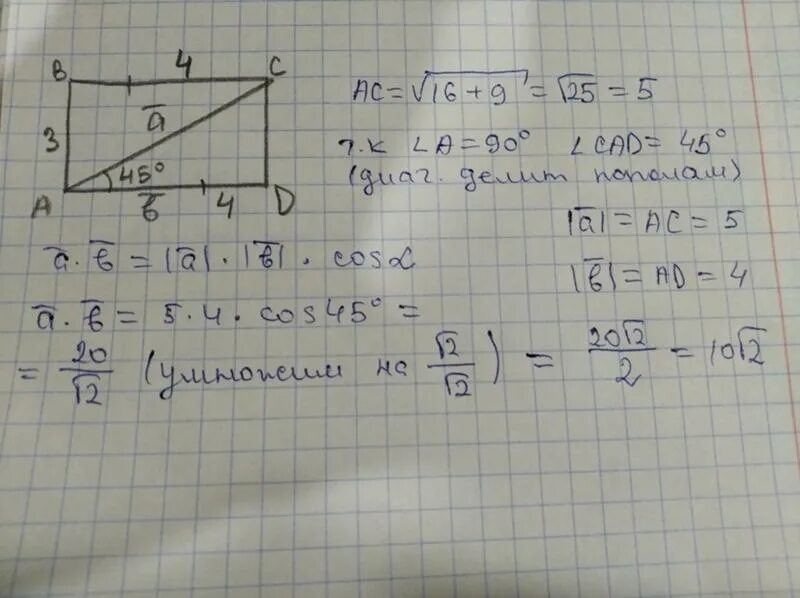 B 4 C
3 a̅
45°
A b̅ 4 D
AC = √16 + 9 = √25 = 5
т.к ∠A = 90° ∠CAD = 45°
(диаг. делит пополам)
|a̅| = AC = 5
a̅ · b̅ = |a̅| · |b̅| · cos α
|b̅| = AD = 4
a̅ · b̅ = 5 · 4 · cos 45° =
= 20/√2 (умножим на √2/√2) = 20√2/2 = 10√2